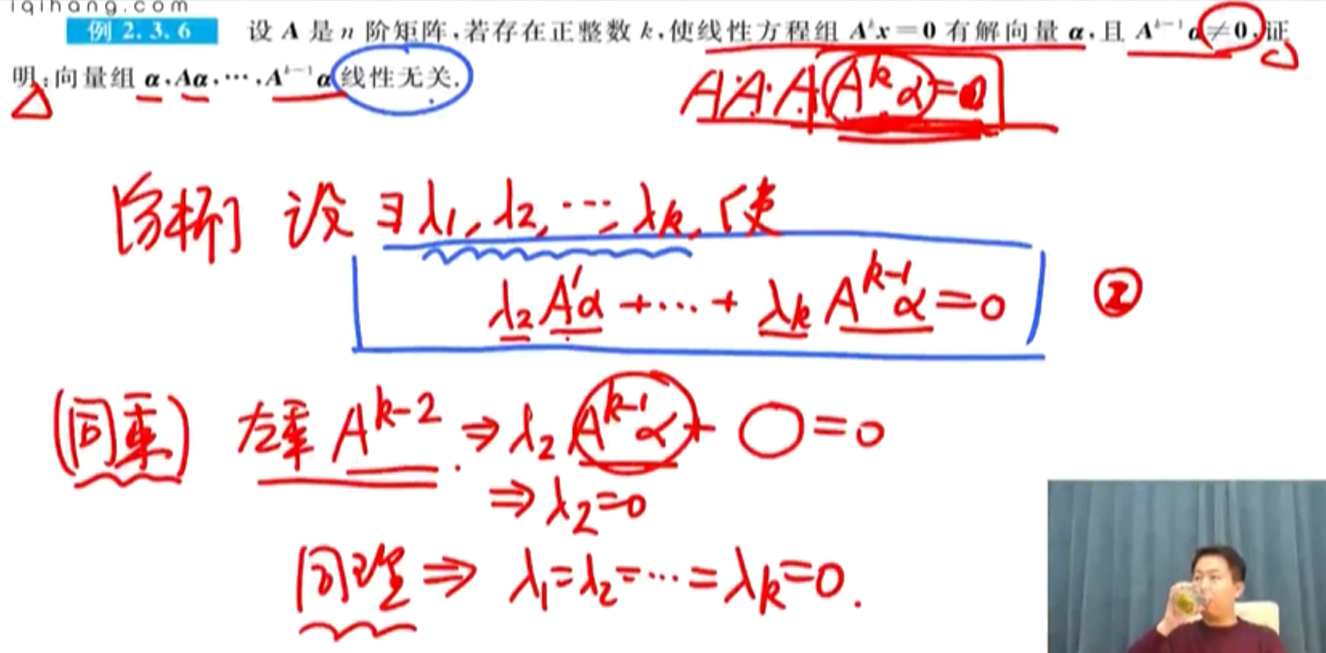 iqihang.com
例 2.3.6 设 A 是 n 阶矩阵,若存在正整数 k,使线性方程组 A^k x = 0 有解向量 α,且 A^{k-1} α ≠ 0,证
明:向量组 α,Aα,⋯,A^{k-1} α 线性无关.
A·A·A A^k α = 0
[分析] 设 ∃ λ1, λ2, ⋯, λk, 使
λ2 A^1 α + ⋯ + λk A^{k-1} α = 0 ②
(同乘) 左乘 A^{k-2}. ⇒ λ2 A^{k-1} α + 0 = 0
⇒ λ2 = 0
同理 ⇒ λ1 = λ2 = ⋯ = λk = 0.